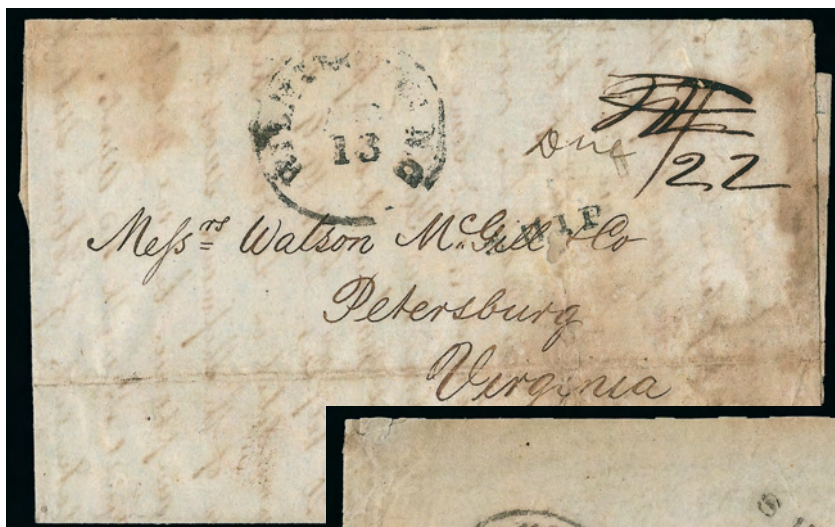 13
Due
22
SHIP
Messrs Watson McGill & Co
Petersburg
Virginia